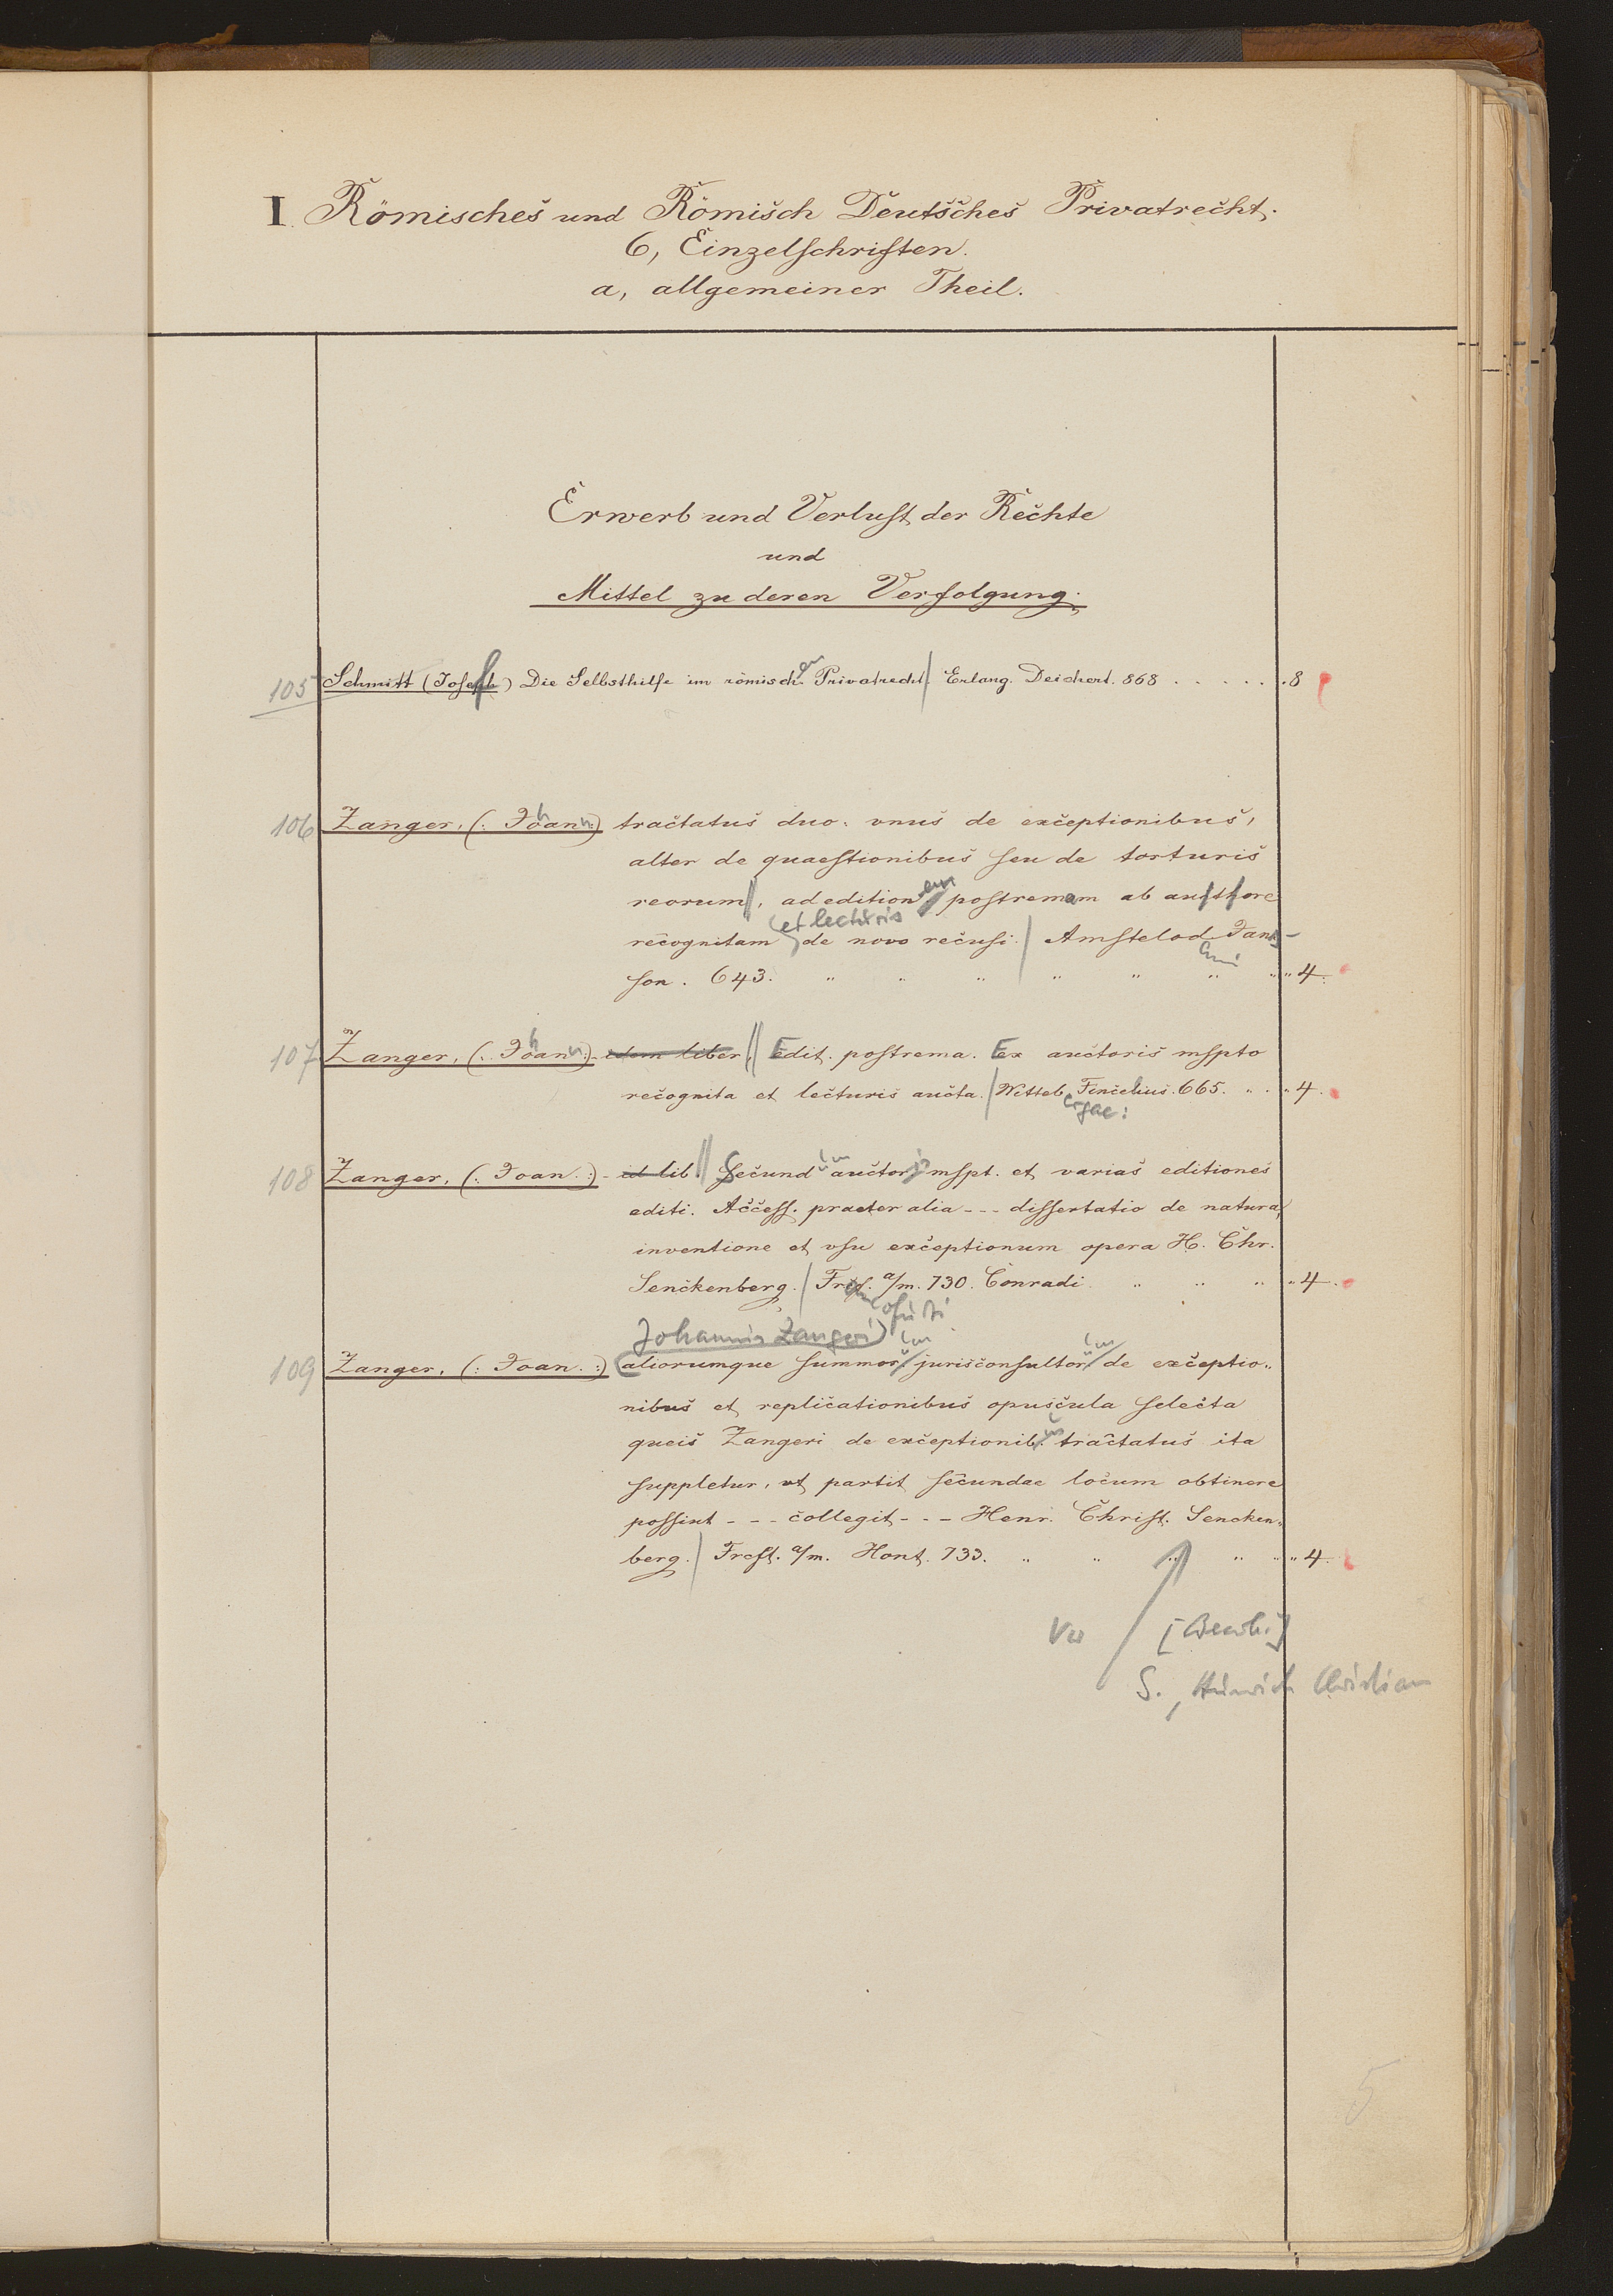 I. Römisches und Römisch Deutsches Privatrecht.
6, Einzelschriften.
a, allgemeiner Theil.
Erwerb und Verlust der Rechte
und
Mittel zu deren Verfolgung.
105 Schmitt (Joseph) Die Selbsthilfe im römischen Privatrecht / Erlang. Deichert. 868 . . . . . . 8
106 Zanger, (: Johann :) tractatus duo. vnus de exceptionibus,
alter de quaestionibus seu de torturis
reorum //, ad editionem postremam ab authore
et lecturis
recognitam de novo recusi. / Amstelod. Jans-
son. 643. " " " " " " " " 4.
107 Zanger, (: Johann :) - idem liber, // Edit. postrema. Ex auctoris mspto
recognita et lecturis aucta. / Witteb. Fincelius. 665. " . " 4.
ergae:
108 Zanger, (: Joan. :) - id lib // Secundum auctoris mspt. et varias editiones
editi. Access. praeter alia --- dissertatio de natura,
inventione et vsu exceptionum opera H. Chr.
Senckenberg. / Frcf. a/m. 730. Conradi " " " " 4.
Johannis Zangeri
109 Zanger, (: Joan. :) aliorumque summorum jurisconsultorum de exceptio„
nibus et replicationibus opuscula selecta
queis Zangeri de exceptionibus tractatus ita
suppletur, vt partit secundae locum obtinere
possint --- collegit --- Henr. Christ. Sencken„
berg. / Frcft. a/m. Hont. 733. " " " " " " 4.
S., Heinrich Christian
5